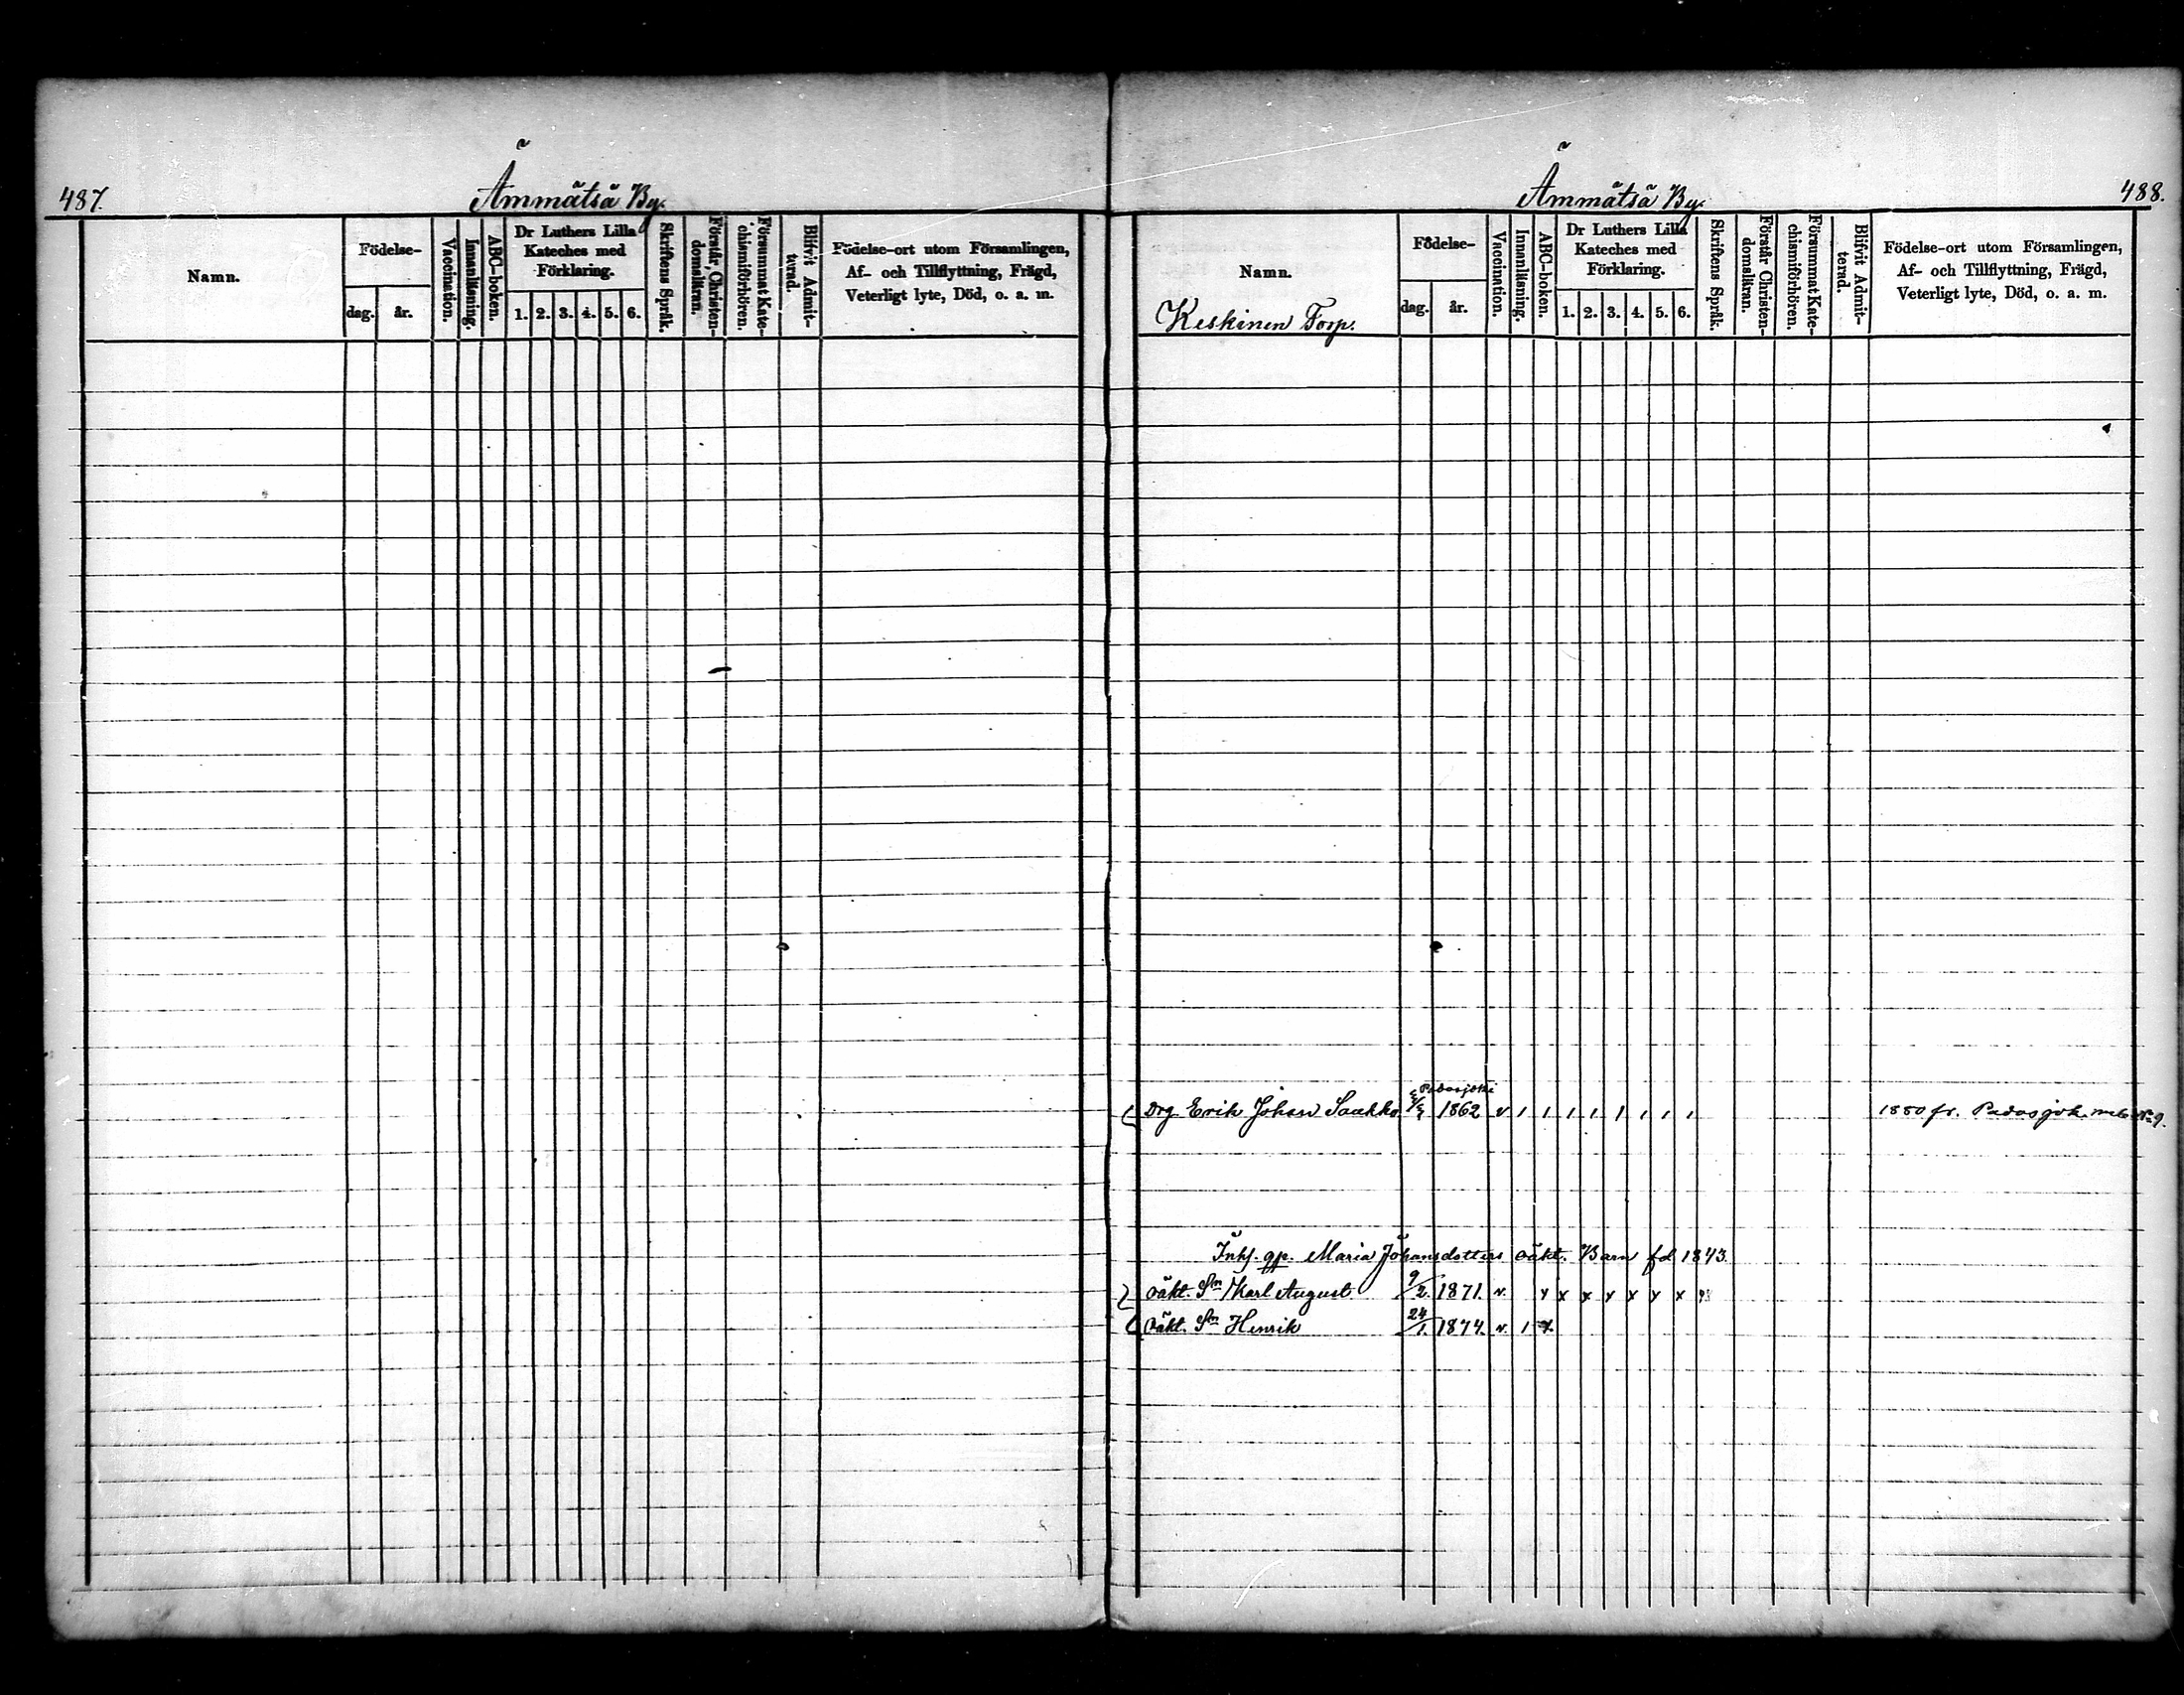 487.
Ämmätsä By.
Namn.
Födelse-
dag.
år.
Vaccination.
Innanläsning.
ABC-boken.
Dr Luthers Lilla
Kateches med
Förklaring.
1. 2. 3. 4. 5. 6.
Skriftens Språk.
Förstår Christen-
domsläran.
Försummat Kate-
chismiförhören.
Blifvit Admit-
terad.
Födelse-ort utom Församlingen,
Af- och Tillflyttning, Frägd,
Veterligt lyte, Död, o. a. m.
488.
Ämmätsä By.
Namn.
Keskinen Torp.
Födelse-
dag.
år.
Vaccination.
Innanläsning.
ABC-boken.
Dr Luthers Lilla
Kateches med
Förklaring.
1. 2. 3. 4. 5. 6.
Skriftens Språk.
Förstår Christen-
domsläran.
Försummat Kate-
chismiförhören.
Blifvit Admit-
terad.
Födelse-ort utom Församlingen,
Af- och Tillflyttning, Frägd,
Veterligt lyte, Död, o. a. m.
Padasjoki
Drg Erik Johan Saukko 1862 v 1 1 1 1 1 1 1 1 1880 fr. Padasjok. No 9.
Inhs. qp. Maria Johansdotters oäkt. Barn fd 1843.
oäkt. Sn Karl August 9/2. 1871. v. x x x x x x x
oäkt. Sn Henrik 24/1. 1874. v. 1 x